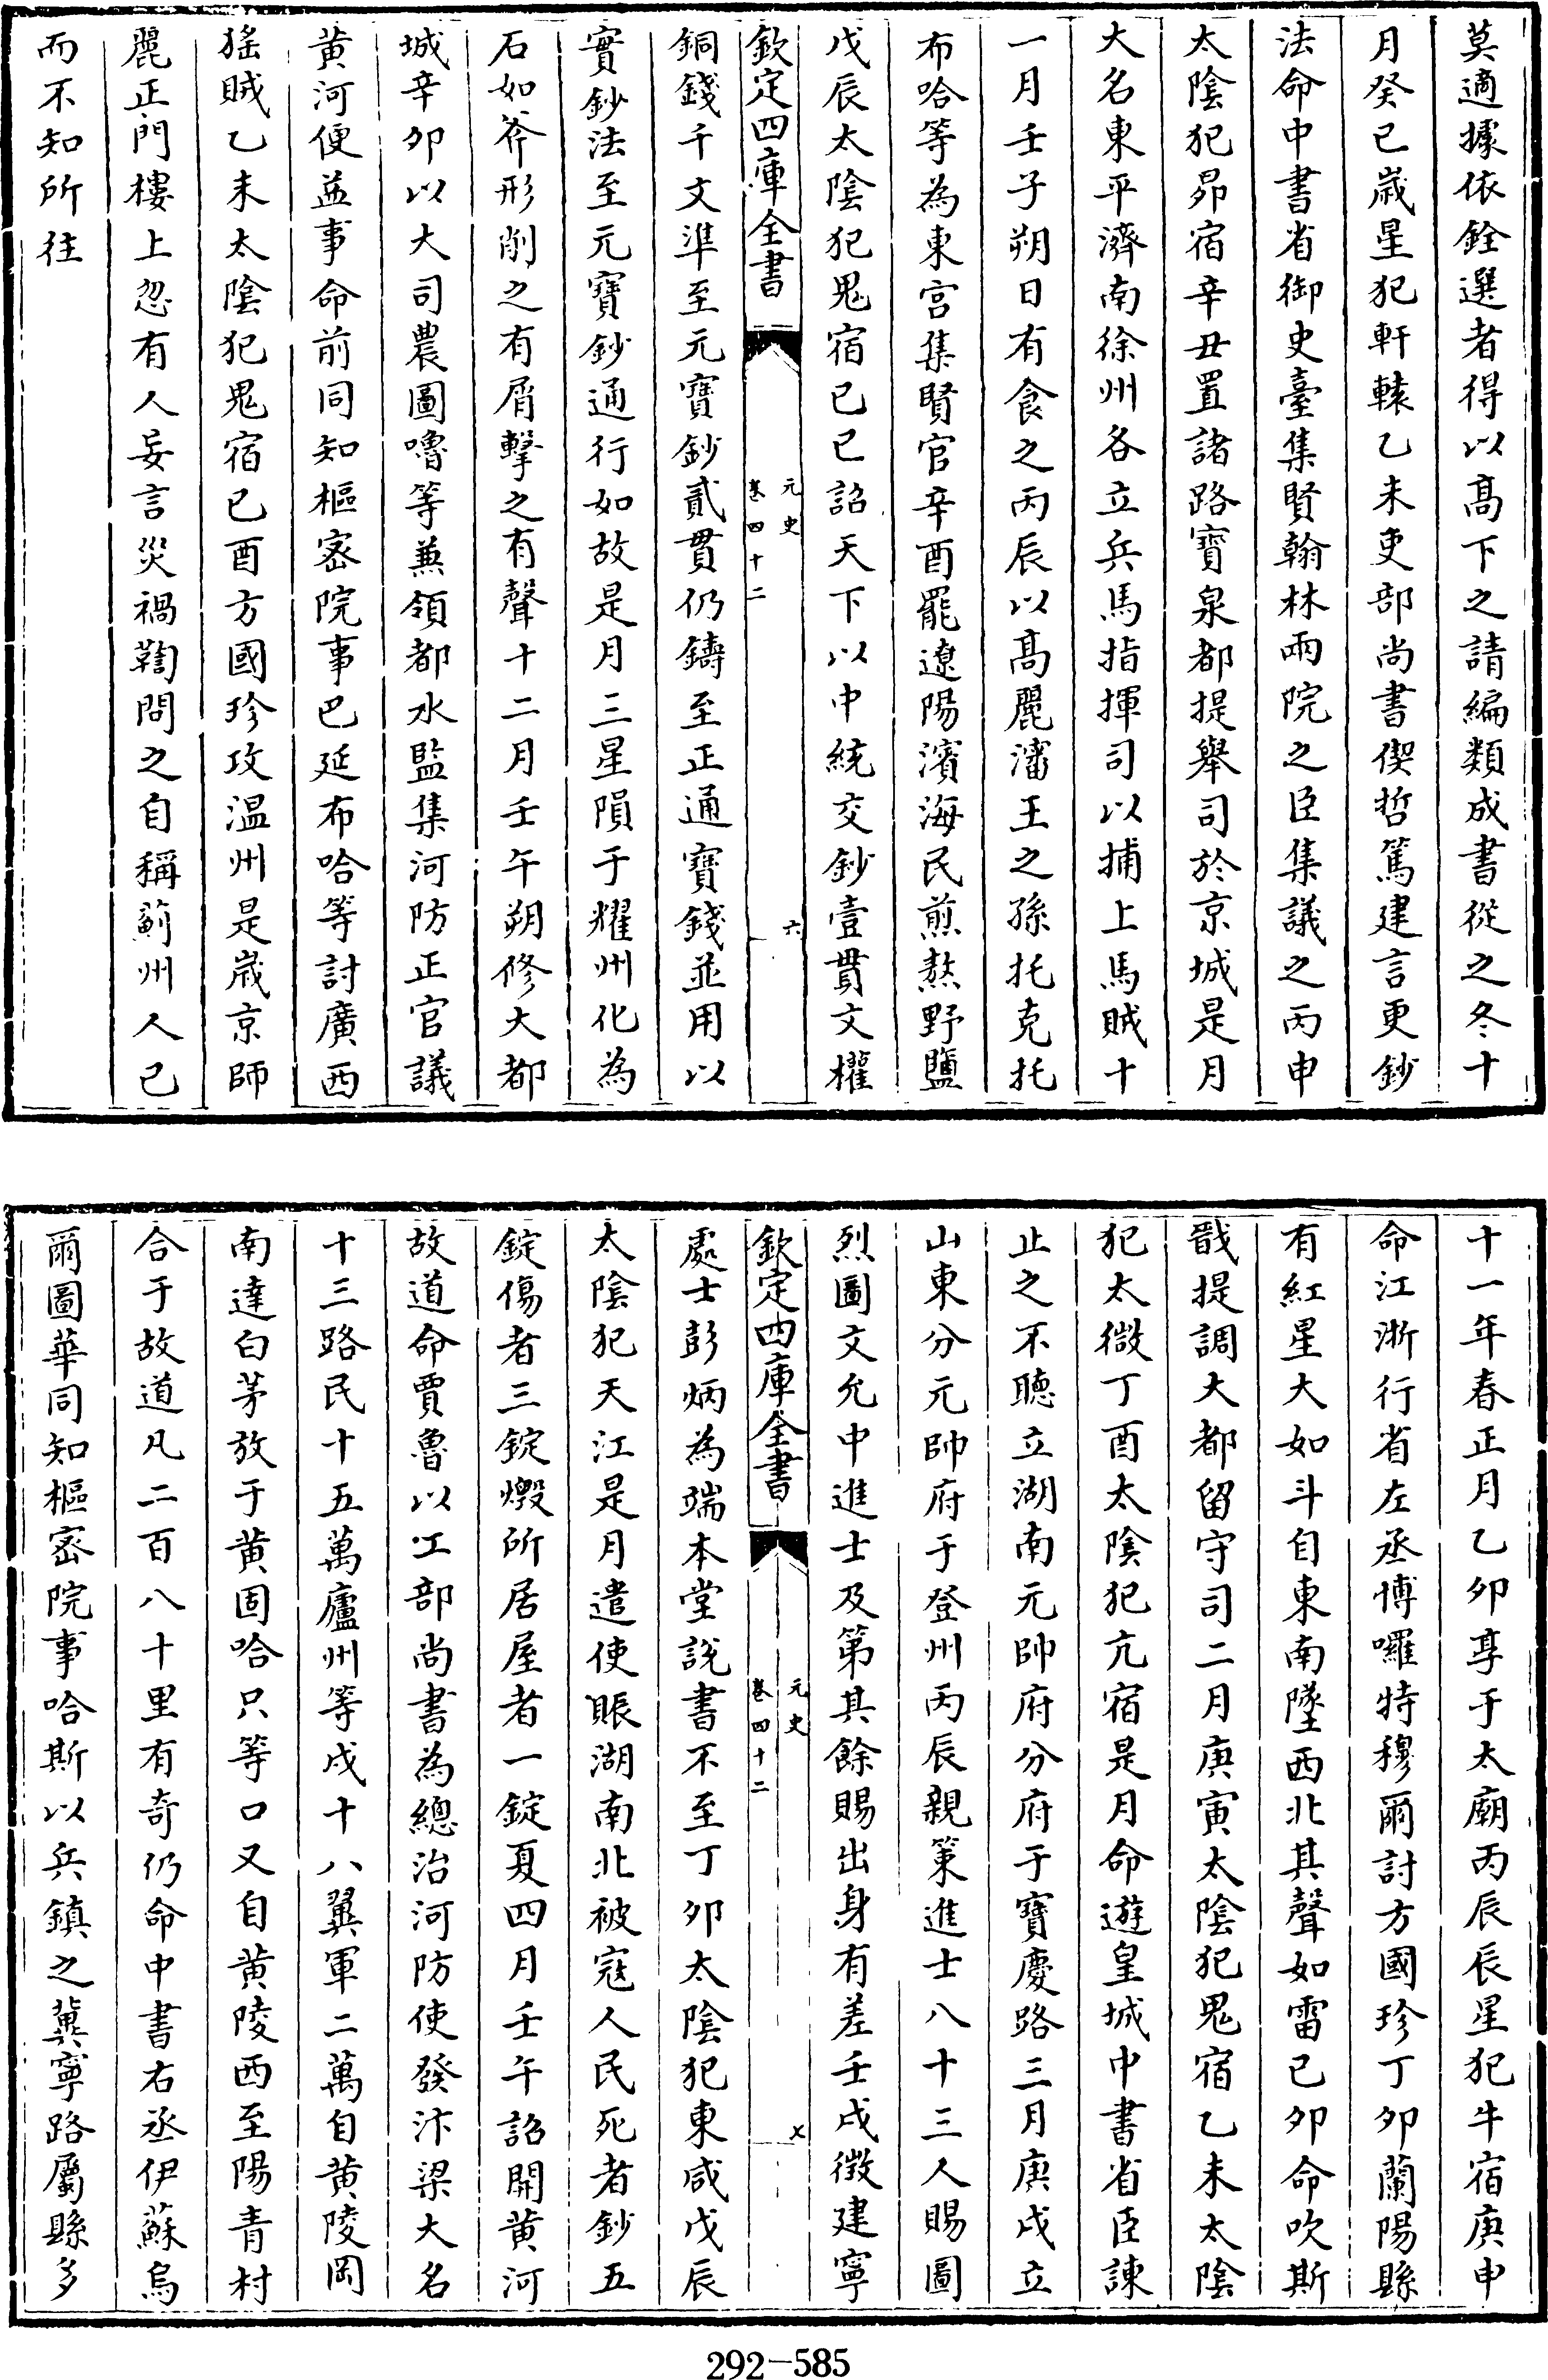 莫適據依銓選者得以髙下之請編類成書從之冬十
月癸巳嵗星犯軒轅乙未吏部尚書偰哲篤建言更鈔
法命中書省御史臺集賢翰林兩院之臣集議之丙申
太陰犯昴宿辛丑置諸路寶泉都提舉司於京城是月
大名東平濟南徐州各立兵馬指揮司以捕上馬賊十
一月壬子朔日有食之丙辰以髙麗瀋王之孫托克托
布哈等為東宫集賢官辛酉罷遼陽濱海民煎熬野鹽
戊辰太陰犯鬼宿己巳詔天下以中統交鈔壹貫文權
欽定四庫全書
元史
卷四十二
六
銅錢千文準至元寶鈔貳貫仍鑄至正通寶錢並用以
實鈔法至元寶鈔通行如故是月三星隕于耀州化為
石如斧形削之有屑擊之有聲十二月壬午朔修大都
城辛卯以大司農圖嚕等兼領都水監集河防正官議
黄河便益事命前同知樞密院事巴延布哈等討廣西
猺賊乙未太陰犯鬼宿己酉方國珍攻温州是嵗京師
麗正門樓上忽有人妄言災禍鞫問之自稱薊州人已
而不知所往
十一年春正月乙卯享于太廟丙辰辰星犯牛宿庚申
命江浙行省左丞博囉特穆爾討方國珍丁卯蘭陽縣
有紅星大如斗自東南墜西北其聲如雷己卯命吹斯
戩提調大都留守司二月庚寅太陰犯鬼宿乙未太陰
犯太微丁酉太陰犯亢宿是月命遊皇城中書省臣諫
止之不聽立湖南元帥府分府于寶慶路三月庚戌立
山東分元帥府于登州丙辰親策進士八十三人賜圖
烈圖文允中進士及第其餘賜出身有差壬戌徵建寧
欽定四庫全書
元史
卷四十二
七
處士彭炳為端本堂說書不至丁卯太陰犯東咸戊辰
太陰犯天江是月遣使賑湖南北被寇人民死者鈔五
錠傷者三錠燬所居屋者一錠夏四月壬午詔開黄河
故道命賈魯以工部尚書為總治河防使發汴梁大名
十三路民十五萬廬州等戍十八翼軍二萬自黄陵岡
南達白茅放于黄固哈只等口又自黄陵西至陽青村
合于故道凡二百八十里有奇仍命中書右丞伊蘇烏
爾圖華同知樞密院事哈斯以兵鎮之冀寧路屬縣多
292-585